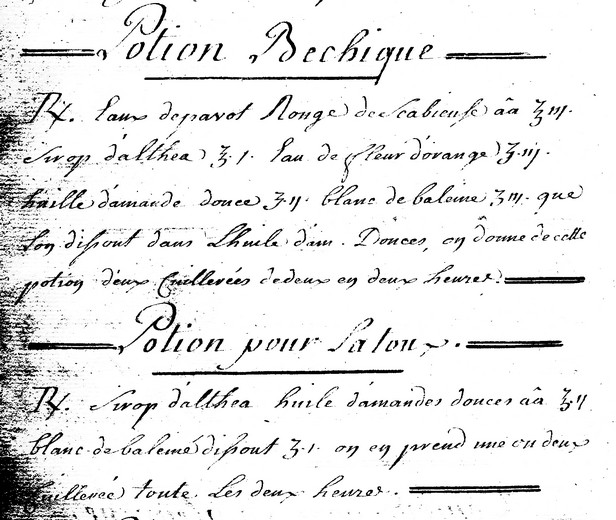 Potion Bechique
Rx. Eaux de pavot Rouge de Scabieuse aâ ℥iij.
Sirop d'althea ℥.j. Eau de fleur d'orange ʒ.iij.
huille d'amande douce ℥.ij blanc de baleine ʒiij. que
l'on dissout dans L'huile d'am. Douces, on donne de cette
potion deux Cuillerées de deux en deux heures.
Potion pour La toux.
Rx. Sirop d'althea huile d'amandes douces aâ ℥.ij
blanc de baleine dissout ʒ.j. on en prend une ou deux
Cuillerée toute Les deux heures.